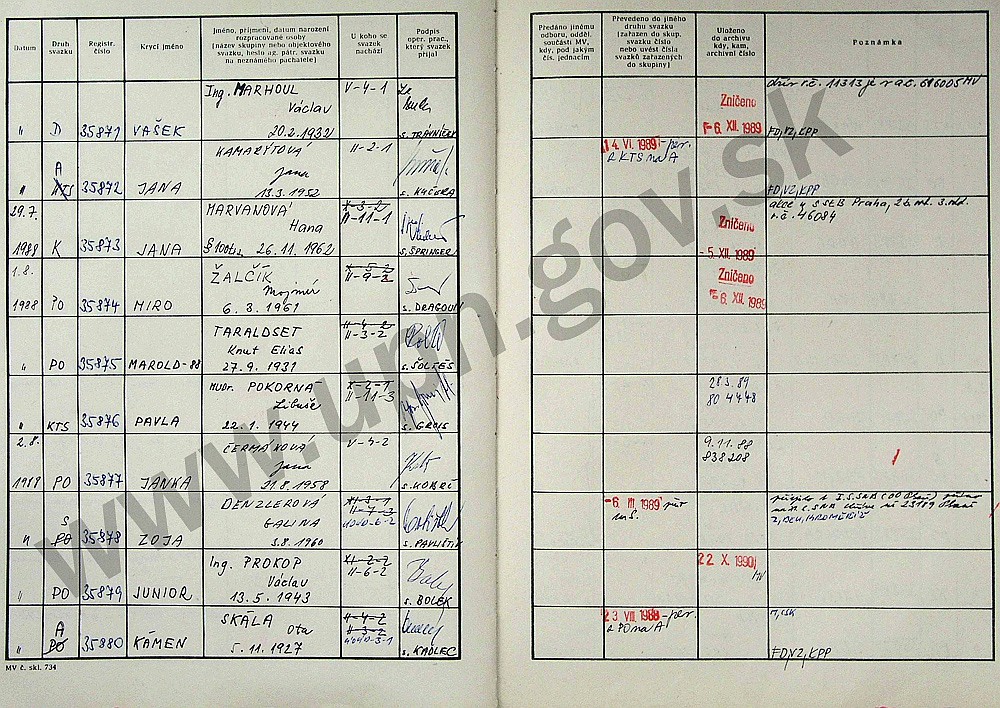 Datum
Druh
svazku
Registr.
číslo
Krycí jméno
Jméno, příjmení, datum narození
rozpracované osoby
(název skupiny nebo objektového
svazku, heslo ag. pátr. svazku
na neznámého pachatele)
U koho se
svazek
nachází
Podpis
oper. prac.,
který svazek
přijal
Předáno jinému
odboru, odděl.
součásti MV,
kdy, pod jakým
čís. jednacím
Převedeno do jiného
druhu svazku
(zařazen do skup.
svazku číslo
nebo uvést čísla
svazků zařazených
do skupiny)
Uloženo
do archivu
kdy, kam,
archivní číslo
Poznámka
" D 35871 VAŠEK
Ing. MARHOUL
Václav
20.2.1932
V-4-1
s. TRÁVNÍČEK
Zničeno
-6. XII. 1989
11313 je v a.č. 616005 MV
FD,VZ,KPP
" A KTS 35872 JANA
KAMARÝTOVÁ
Jana
13.3.1952
II-2-1
s. KUČERA
14. VI. 1989 - per.
z KTS na A
FD,VZ,KPP
29.7.
1988 K 35873 JANA
MARVANOVÁ
Hana
26.11.1962
X-3-2
II-11-1
s. ŠPRINGER
Zničeno
-5. XII. 1989
akce u S StB Praha, 2.
r.č. 46084
1.8.
1988 PO 35874 MIRO
ŽALČÍK
Mojmír
6.3.1961
X-5-2
II-9-2
s. DRAGOUN
Zničeno
-6. XII. 1989
" PO 35875 MAROLD-88
TARALDSET
Knut Elias
27.9.1931
II-4-2
II-3-2
s. ŠOLTÉS
" KTS 35876 PAVLA
MUDr. POKORNÁ
Libuše
22.1.1944
X-2-1
II-11-3
s. GROIS
28.3.89
80 4448
2.8.
1988 PO 35877 JANKA
ČERMÁKOVÁ
Jana
21.8.1958
V-4-2
9.11.88
838208
" S PO 35878 ZOJA
DENZLEROVÁ
GALINA
5.8.1960
XI-3-1
II-7-3
s. PAVLIŠTÍK
-6. III. 1989
" PO 35879 JUNIOR
Ing. PROKOP
Václav
13.5.1943
XI-2-2
II-6-2
s. BOLEK
22 X. 1990
MV
" A PO 35880 KÁMEN
SKÁLA
Ota
5.11.1927
II-4-2
II-3-2
s. KADLEC
23 VIII. 1988 - per.
z PO na A
FD,VZ,KPP
MV č. skl. 734
www.upn.gov.sk